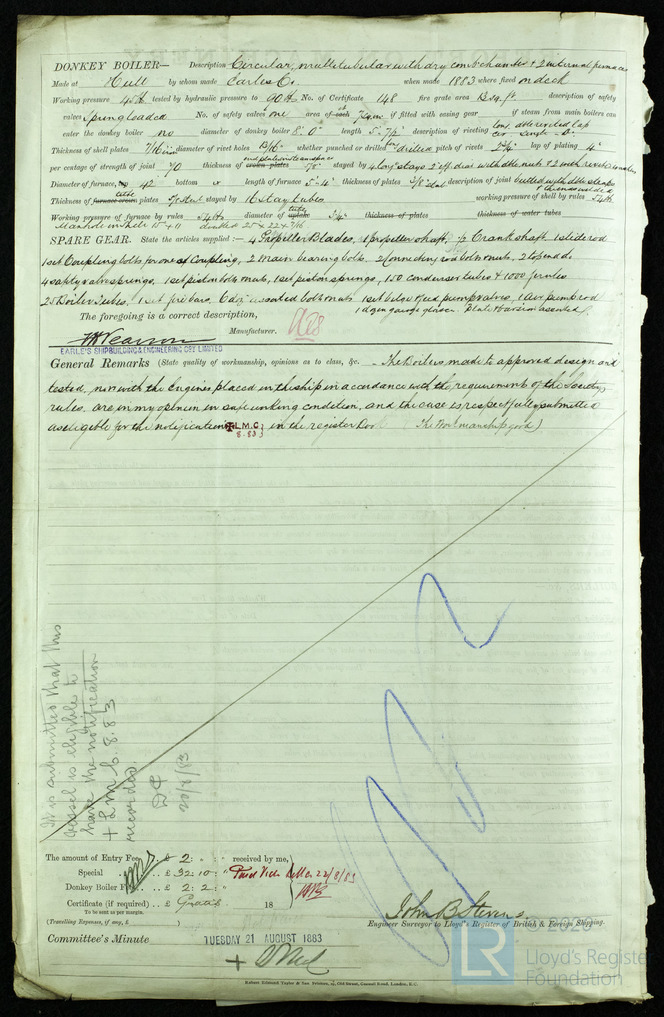 DONKEY BOILER— Description Circular, multitubular with dry comb chamber & 2 internal furnaces
Made at Hull by whom made Earles Co. when made 1883 where fixed on deck
Working pressure 45 lb tested by hydraulic pressure to 90 lb No. of Certificate 148 fire grate area 13 sq. ft description of safety
valves Spring loaded No. of safety valves one area of each 7.9 if fitted with easing gear if steam from main boilers can
enter the donkey boiler no diameter of donkey boiler 8' 0" length 5' 7½" description of riveting long. dble riveted lap
Thickness of shell plates 7/16 diameter of rivet holes 13/16 whether punched or drilled drilled pitch of rivets lap of plating 4"
per centage of strength of joint 70 thickness of crown plates stayed by 4 long stays 2" eff dia with dble nuts &
Diameter of furnace, top 42" bottom length of furnace 5' 4" thickness of plates 3/8 description of joint butted with dble straps
Thickness of furnace crown plates stayed by 16 stay tubes working pressure of shell by rules 54 lb
Working pressure of furnace by rules 54 lb diameter of uptake thickness of plates thickness of water tubes
SPARE GEAR. State the articles supplied:— 4 Propeller Blades, 1 propeller shaft, ½ Crank shaft, 1 slide rod
1 set Coupling bolts for one Coupling, 2 main bearing bolts, 2 Connecting rod bolts & nuts, 2 top end do
4 safety valve springs, 1 set piston bolts & nuts, 1 set piston springs, 150 condenser tubes & 1000 ferrules
25 Boiler tubes, 1 set fire bars, 6 doz assorted bolts & nuts 1 set bilge & feed pump valves, 1 air pump rod
1 dozen gauge glasses. Plate & bar iron assorted
The foregoing is a correct description,
Manufacturer.
EARLE'S SHIPBUILDING & ENGINEERING COY LIMITED
General Remarks (State quality of workmanship, opinions as to class, &c. The Boilers made to approved design and
tested, now with the Engines placed in the ship in accordance with the requirements of the Society's
rules, are in my opinion in safe working condition, and the case is respectfully submitted
as eligible for the notification L.M.C. 8.83 in the register Book The Workmanship good)
It is submitted that this
vessel is eligible to
have the notification
+ L.M.C. 8.83
recorded
20/8/83
The amount of Entry Fee .. £ 2 : : received by me,
Special .. £ 32 : 10 : Fees Vide Letter 22/8/83
Donkey Boiler Fee .. £ 2 : 2 :
Certificate (if required) .. £ Gratis 18
To be sent as per margin.
(Travelling Expenses, if any, £ )
John B Stevens
Engineer Surveyor to Lloyd's Register of British & Foreign Shipping.
Committee's Minute TUESDAY 21 AUGUST 1883
Robert Edmund Taylor & Son, Printers, 19, Old Street, Goswell Road, London, E.C.
© 2020
LR
Lloyd's Register
Foundation